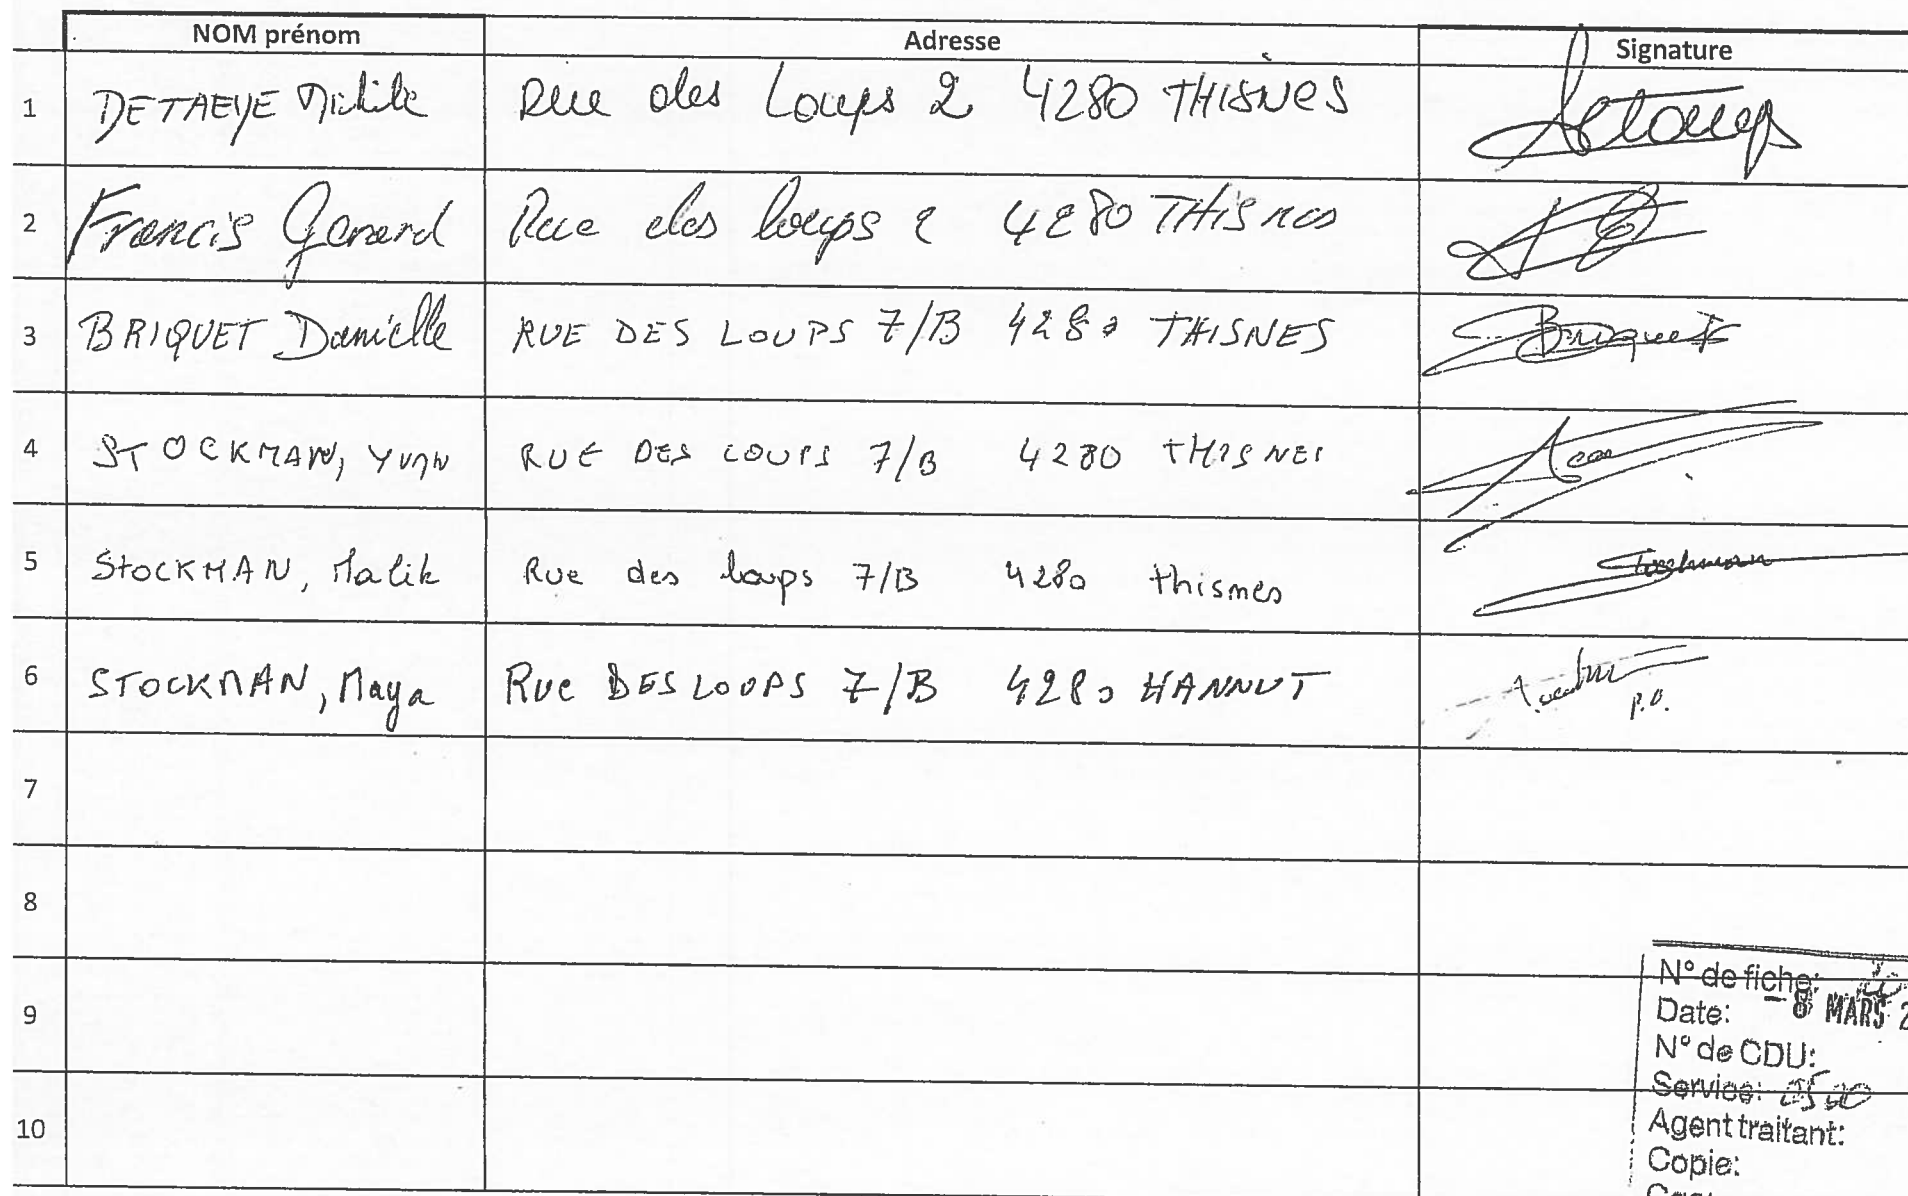 NOM prénom Adresse Signature
1 DETAEYE Rue des Loups 2 4280 THISNES
2 Francis Gerard Rue des loups 2 4280 THISnes
3 BRIQUET Danielle RUE DES LOUPS 7/B 4280 THISNES Briquet
4 STOCKMAN, YVAN RUE DES LOUPS 7/B 4280 THISNES
5 StocKMAN, Malik Rue des loups 7/B 4280 thisnes Stockman
6 STOCKMAN, Maya Rue DES LOUPS 7/B 4280 HANNUT P.O.
7
8
9
10
N° de fiche:
Date: - 8 MARS 2
N° de CDU:
Service:
Agent traitant:
Copie: